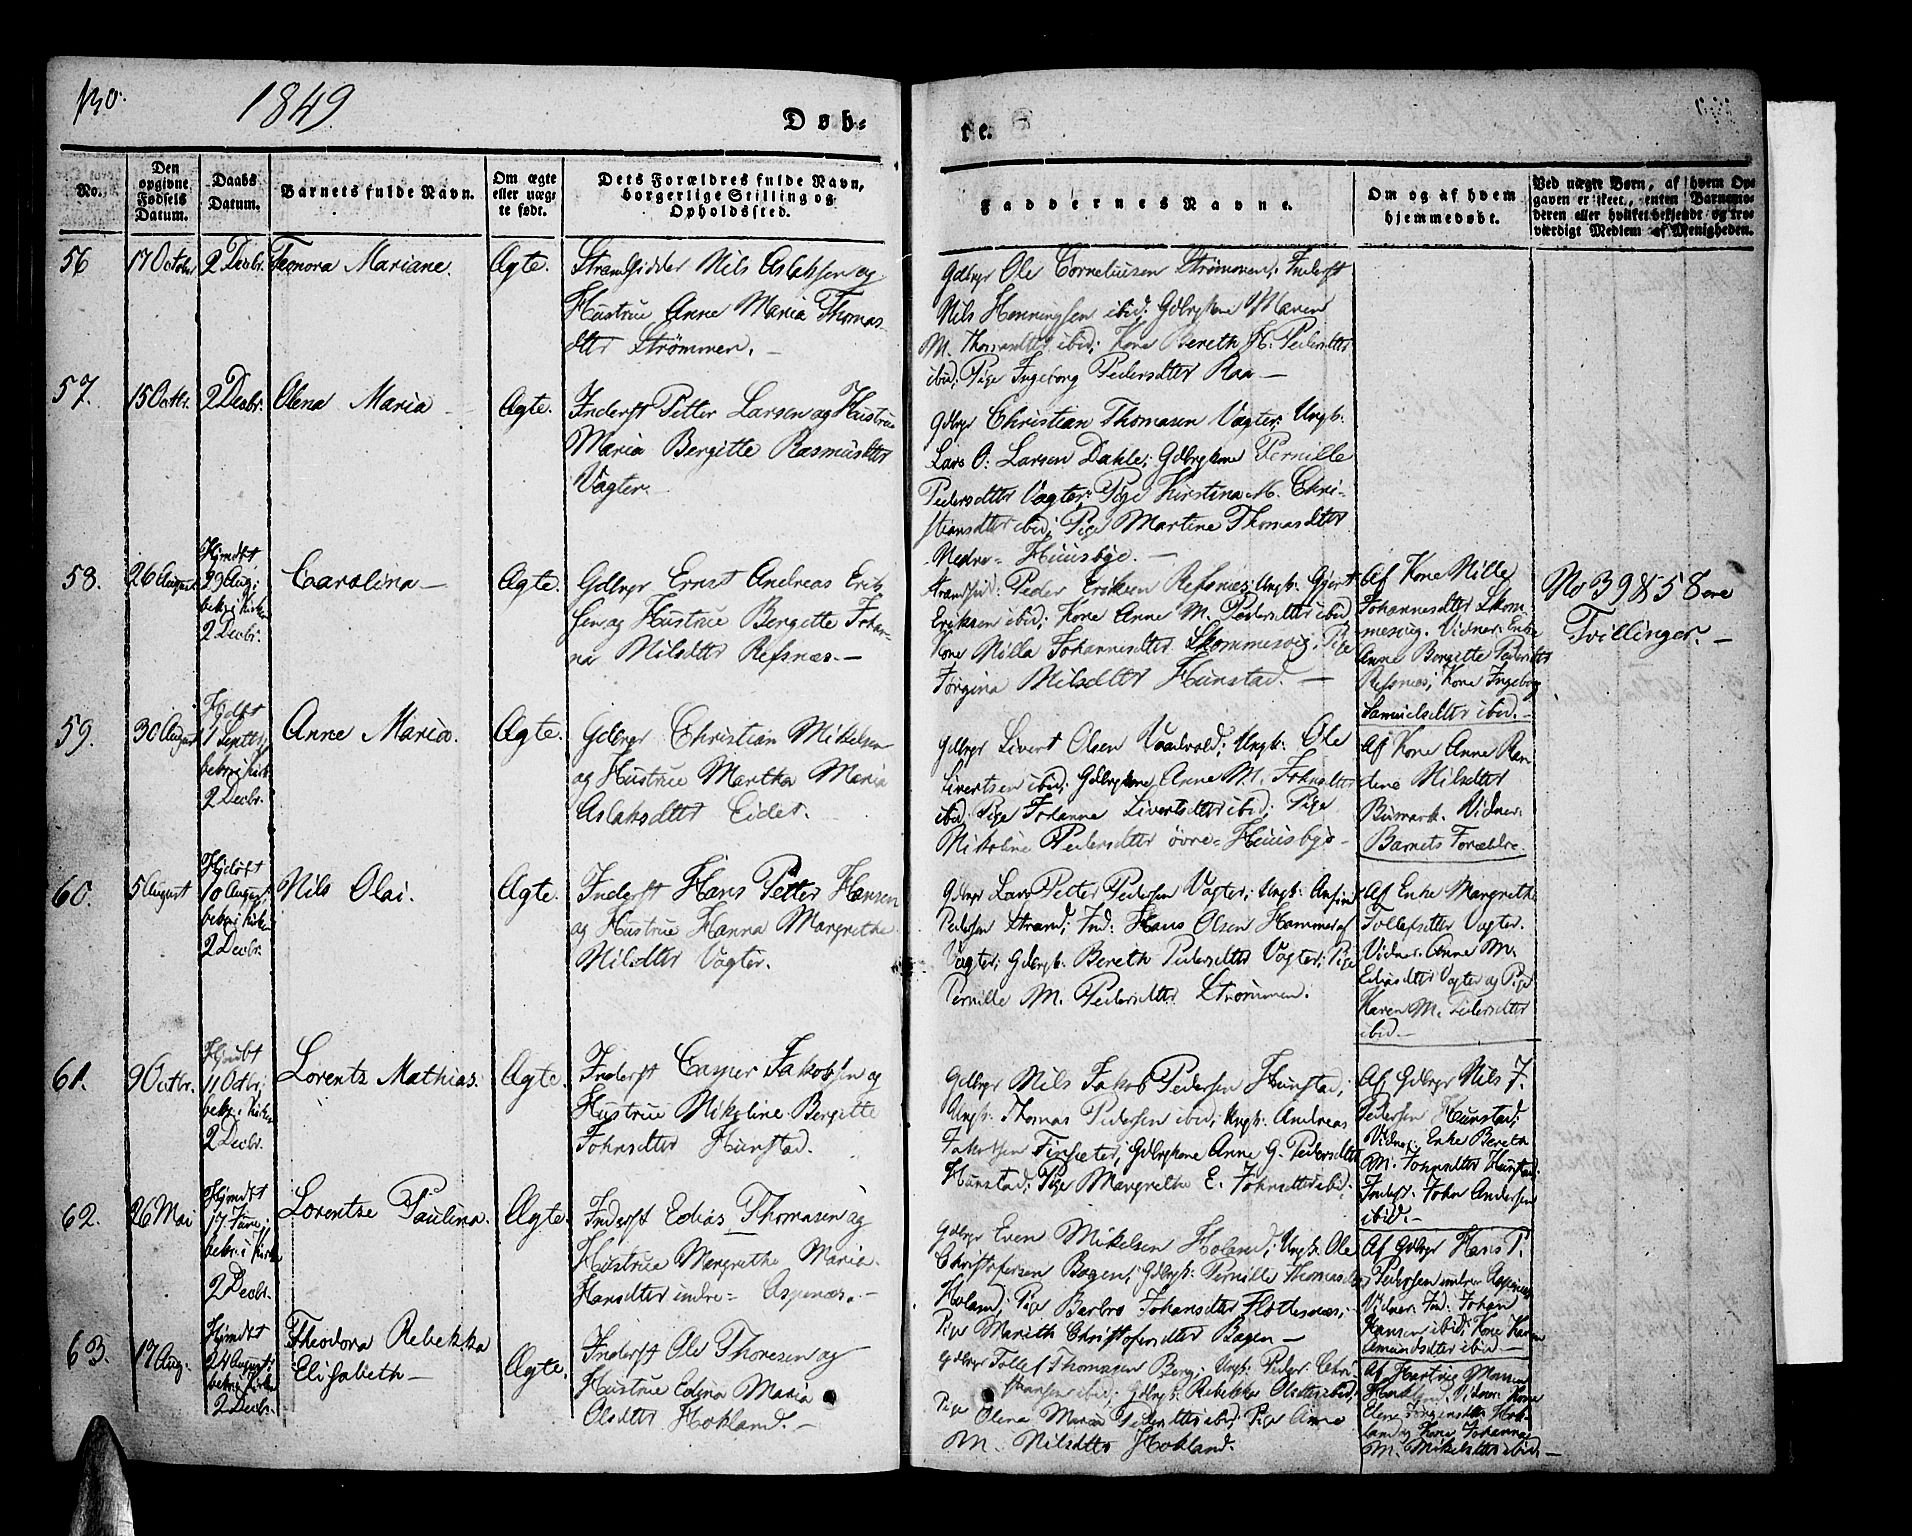 130.
1849.
Døb-
te.
No.
Den opgivne Fødsels Datum.
Daabs Datum.
Barnets fulde Navn.
Om ægte eller uægte født.
Dets Forældres fulde Navn, borgerlige Stilling og Opholdssted.
Faddernes Navne.
Om og af hvem hjemmedøbt.
Ved uægte Børn, af hvem Opgaven er skeet, enten Barnemoderen eller hvilket bekjendt og troværdigt Medlem af Menigheden.
56
17 Octobr
2 Decbr.
Leonora Mariane.
Ægte.
Strandsidder Nils Aslaksen og
Hustrue Anne Maria Thomas-
dtter Strømmen. —
Gdbrgr Ole Corneliusen Strømmen; Inderst
Nils Henningsen ibid; Gdbrgkone Maren
M. Thomasdtter ibid; Kone Bereth H. Pedersdtter
ibid; Pige Ingeborg Pedersdtter Raa —
57.
15 Octbr.
2 Decbr.
Olena Maria
Ægte.
Inderst Petter Larsen og Hustrue
Maria Bergitte Rasmusdtter
Vagter.
Gdbrgr Christian Thomasen Vagter; Ungk.
Lars O. Larsen Dahle; Gdbrgkone Pernille
Pedersdtter Vagter; Pige Kirstina M. Chri-
stiansdtter ibid; Pige Martine Thomasdtter
Nedre- Huusbye. —
58.
26 August
Hjmdbt
29 Aug;
bekr. i Kirken
2 Decbr.
Carolina —
Ægte.
Gdbrgr Ernst Andreas Erik-
sen og Hustrue Bergitte Johan-
na Nilsdtter Refsnæs. —
Strandsid: Peder Eriksen Refsnæs; Ungk. Gjert
Eriksen ibid; Kone Anne M. Pedersdtter ibid
Kone Nilla Johannesdtter Skommesvig; Pige
Jørgina Nilsdtter Hunstad. —
Af Kone Nille
Johannesdtter Skom-
mesvig. Vidner: Enke
Anne Bergitte Pedersdtter
Refsnæs; Kone Ingeborg
Samuelsdtter ibid. —
No 39 & 58 ere
Tvillinger. —
59.
30 August
1 Septbr;
bekr. i Kirk.
2 Decbr.
Anne Maria.
Ægte.
Gdbrgr Christian Mikelsen
og Hustrue Martha Maria
Aslaksdtter Eidet.
Gdbrgr Sivert Olsen Vaadvold; Ungk. Ole
Sivertsen ibid; Gdbrgkone Anne M. Johnsdtter
ibid; Pige Johanne Sivertsdtter ibid; Pige
Nikoline Pedersdtter øvre- Huusbye —
Af Kone Anne Ran-
dine Nilsdtter
Bumark. Vidner:
Barnets Forældre.
60.
5 August
10 August;
bekr. i Kirken
2 Decbr.
Nils Olai.
Ægte.
Inderst Hans Petter Hansen
og Hustrue Hanna Margrethe
Nilsdtter Vagter.
Gdbrgr Lars Peter Pedersen Vagter; Ungk.
Pedersen Strand; Ind: Hans Olsen Hammer af
Vagter; Gdbrgk. Bereth Pedersdtter Vagter; Pige
Pernille M. Pedersdtter Strømmen.
Af Enke Margrethe
Tollefsdtter Vagter.
Vidner: Anne M.
Eliasdtter Vagter og Pige
Karen M. Pedersdtter
ibid —
61.
9 Octbr.
11 Octbr;
bekr. i Kirken
2 Decbr.
Lorentz Mathias.
Ægte.
Inderst Casper Jakobsen og
Hustrue Nikoline Bergitte
Johnsdtter Hunstad.
Gdbrgr Nils Jakob Pedersen Hunstad;
Ungk. Thomas Pedersen ibid; Ungk. Andreas
Jakobsen Finsæter; Gdbrgkone Anne G. Pedersdtter
Hunstad; Pige Margrethe E. Johnsdtter ibid;
Af Gdbrgr Nils J.
Pedersen Hunstad;
Vidner: Enke Bereth
M. Johnsdtter Hunstad.
Inderst. John Andersen
ibid. —
62.
26 Mai
Hjmdbt
17 June;
bekr. i Kirken
2 Decbr.
Lorentse Paulina.
Ægte.
Inderst Edias Thomasen og
Hustrue Margrethe Maria
Hansdtter indre- Aspenæs. —
Gdbrgr Even Mikelsen Holand; Ungk. Ole
Christofersen Bagen; Gdbrgk. Pernille Thomasdtter
Holand; Pige Barbro Johansdtter Flottesnæs;
Pige Marith Christofersdtter Bagen —
Af Gdbrgr Hans P.
Pedersen indre Aspenæs
Vidner: Ind: Johan
Hansen ibid; Kone Karen
Amundsdtter ibid —
63.
17 Aug.
Hjmdbt
24 August;
bekr. i Kirken
2 Decbr.
Theodora Rebekka
Elisabeth —
Ægte.
Inderst Ole Thoresen og
Hustrue Edina Maria
Olsdtter Hokland. —
Gdbrgr Tollef Thomasen Berg; Ungk. Peder Chri-
stiansen ibid; Gdbrgk. Rebekka Olsdtter ibid;
Pige Olena Maria Pedersdtter ibid; Pige Anne
M. Nilsdtter Hokland.
Af Hartvig Monsen
Hokland. Vidner: Kone
Elen Jørgensdtter Hok-
land og Kone Johanna
M. Mikelsdtter ibid. —